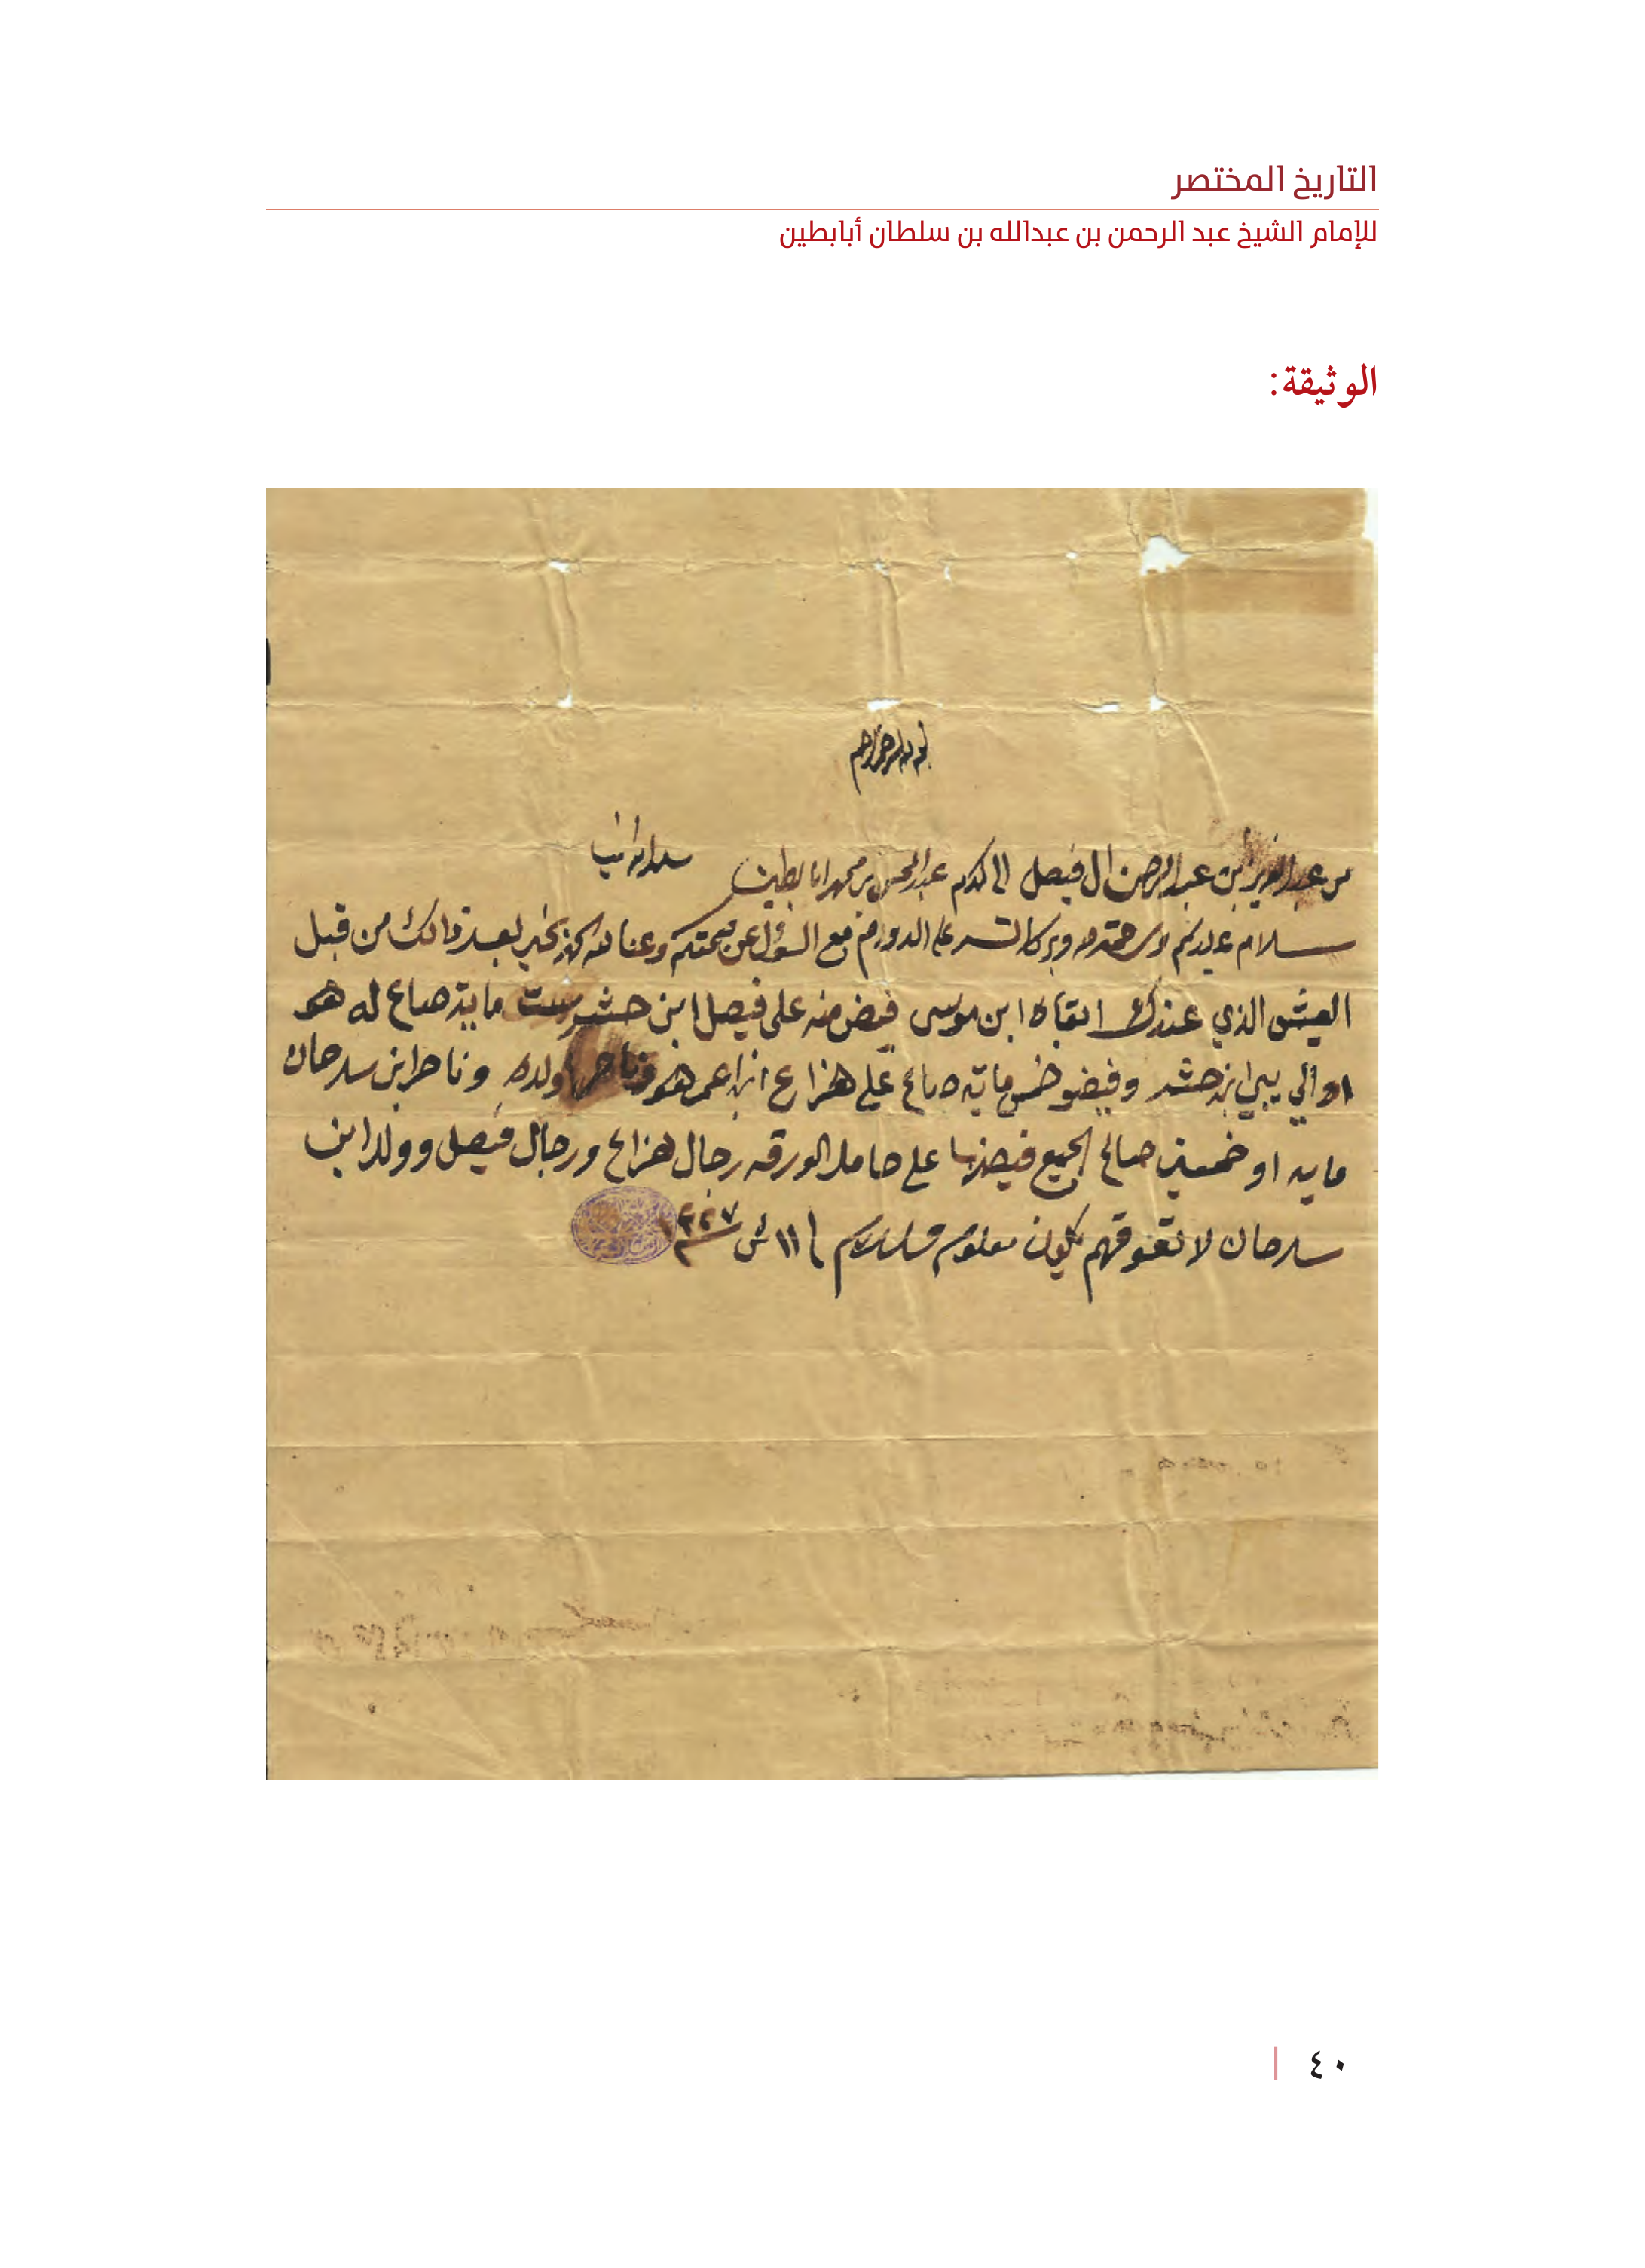 التاريخ المختصر
للإمام الشيخ عبد الرحمن بن عبدالله بن سلطان أبابطين
الوثيقة:
بسم الله الرحمن الرحيم
من عبد العزيز بن عبد الرحمن ال فيصل الى المكرم عبد المحسن بن محمد ابابطين سلمه الله
سلام عليكم ورحمة الله وبركاته على الدوام مع السؤال عن صحتكم وعنا لله الحمد بخير بعد ذالك من قبل
العيش الذي عندك ابقاه ابن موسى فيض منه على فيصل ابن حشر ست ماية صاع له هو
اوالي يبي ابن حشر وفيضو خمس ماية صاع على هزاع ابن عمر هو وناصر اولده وناصر ابن سرحان
مايه او خمسين صاع الجميع فيضها على حامل الورقه رجال هزاع ورجال فيصل وولد ابن
سرحان لا تعوقهم يكون معلوم والسلام ١١ ش ١٣٢٧
٤٠